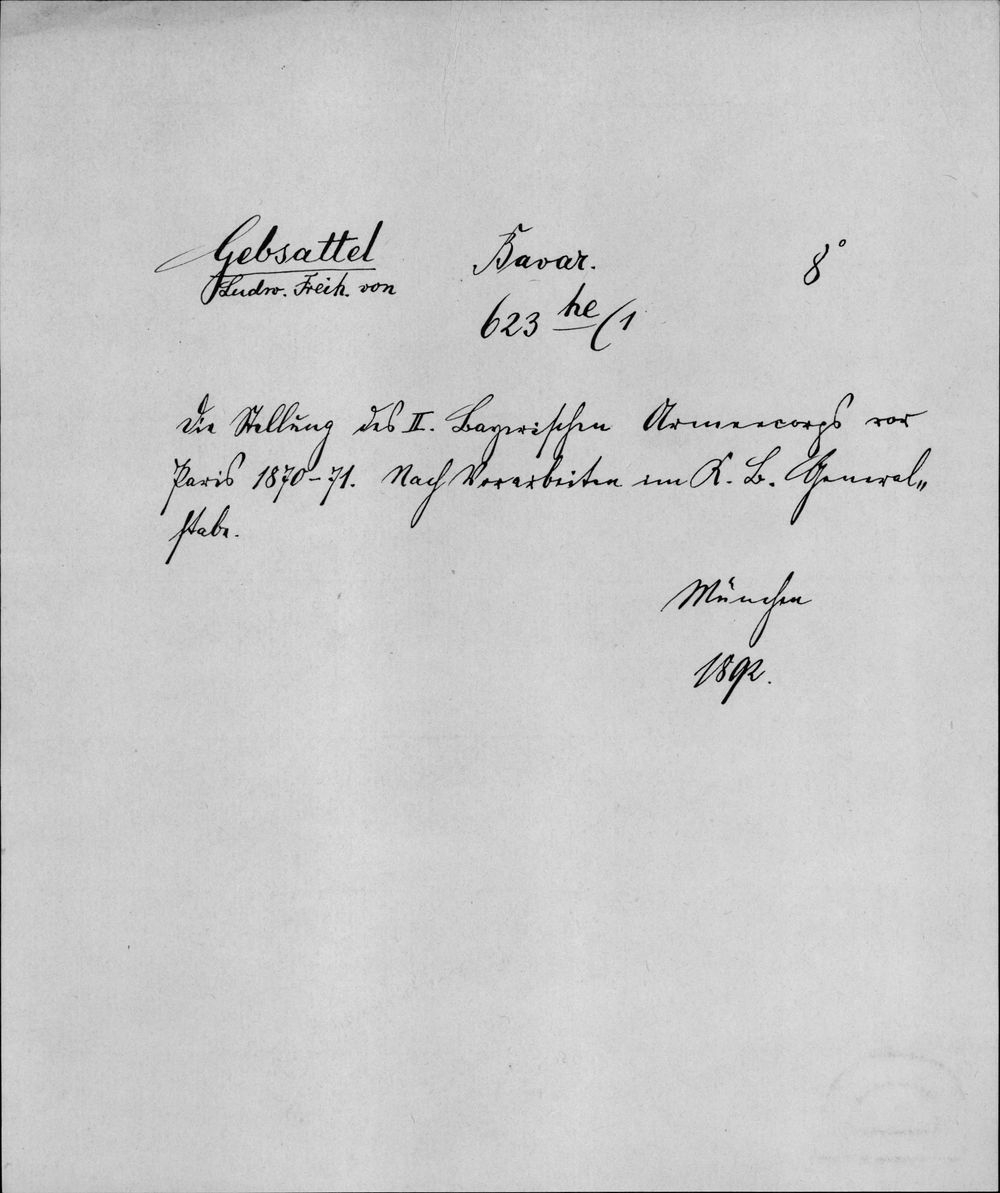 Gebsattel Bavar. 8°
Ludw. Freih. von
623 he/1
Die Stellung des II. Bayerischen Armeecorps vor
Paris 1870-71. Nach Vorarbeiten im K. B. General„
stabe.
München
1892.